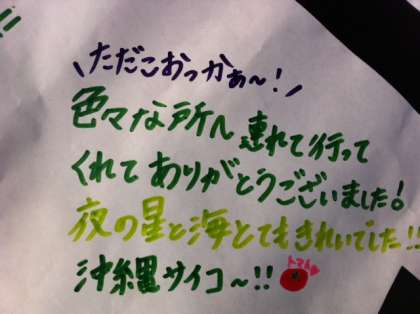 \ただこおっかぁ〜!/
色々な所へ連れて行って
くれてありがとうございました!
夜の星と海とてもきれいでした!!
トマト♥
沖縄サイコ〜!!